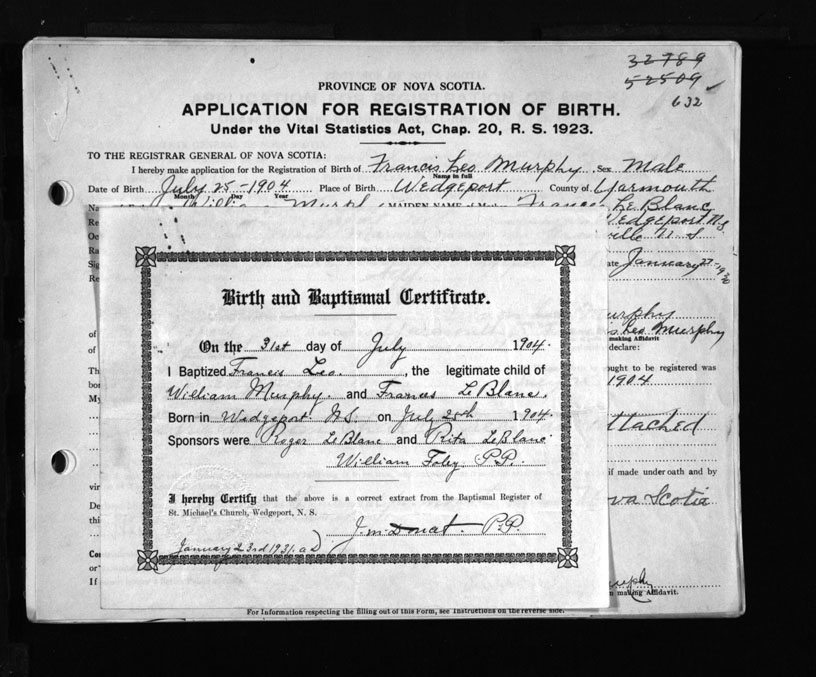 32789
52509
632
PROVINCE OF NOVA SCOTIA.
APPLICATION FOR REGISTRATION OF BIRTH.
Under the Vital Statistics Act, Chap. 20, R. S. 1923.
TO THE REGISTRAR GENERAL OF NOVA SCOTIA:
I hereby make application for the Registration of Birth of Francis Leo Murphy Sex Male
Name in full
Date of Birth July 25-1904 Place of Birth Wedgeport County of Yarmouth
Month Day Year
MAIDEN NAME Frances LeBlanc
Wedgeport N.S.
ville N.S
January 27-19
Murphy
Leo Murphy
making Affidavit
declare:
ought to be registered was
1904
ttached
if made under oath and by
ova Scotia
urphy
making Affidavit.
Birth and Baptismal Certificate.
On the 31st day of July 1904.
I Baptized Francis Leo., the legitimate child of
William Murphy. and Frances LeBlanc.
Born in Wedgeport N.S. on July 25th 1904.
Sponsors were Roger LeBlanc and Rita LeBlanc
William Foley P.P.
I hereby Certify that the above is a correct extract from the Baptismal Register of
St. Michael's Church, Wedgeport, N. S.
J. m. Donat P.P.
January 23rd 1931. a.D
For Information respecting the filling out of this Form, see Instructions on the reverse side.